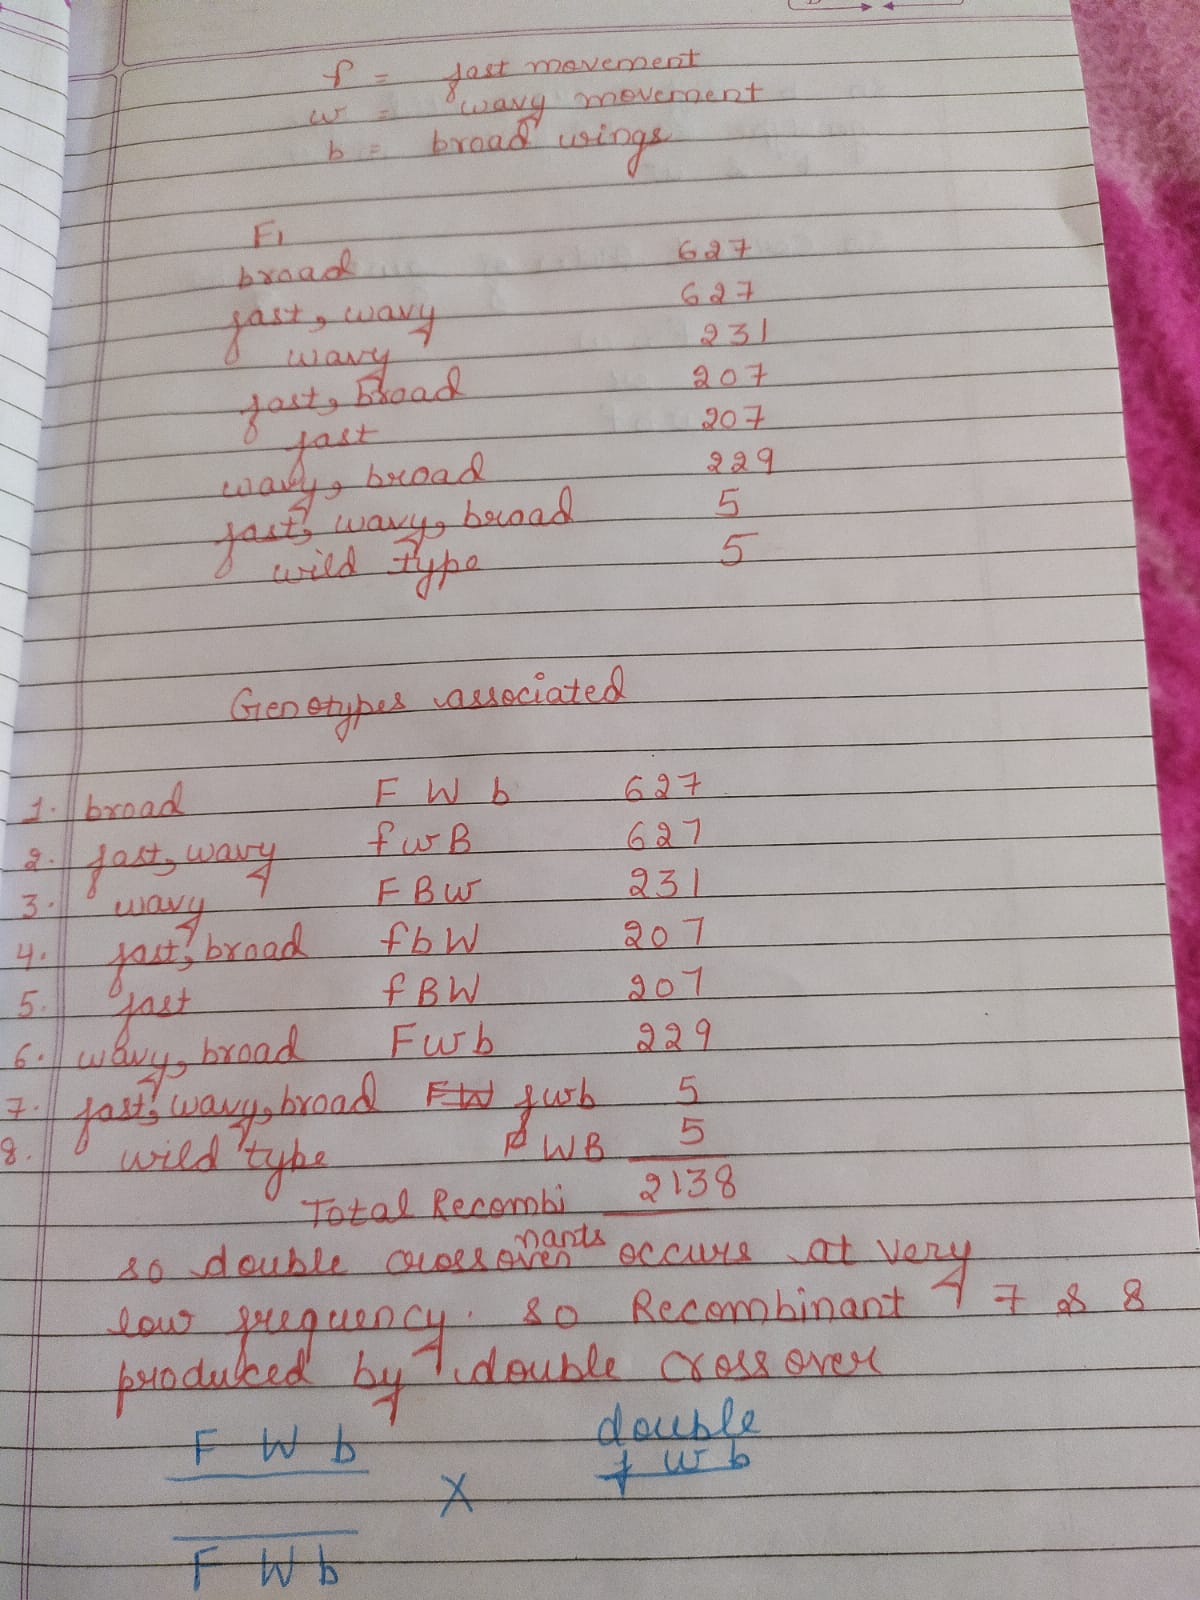 f = fast movement
w = wavy movement
b = broad wings
F1
broad 627
fast, wavy 627
wavy 231
fast, broad 207
fast 207
wavy, broad 229
fast, wavy, broad 5
wild type 5
Genotypes associated
1. broad F W b 627
2. fast, wavy f w B 627
3. wavy F B w 231
4. fast, broad f b W 207
5. fast f B W 207
6. wavy, broad F w b 229
7. fast, wavy, broad FW fwb 5
8. wild type F WB 5
Total Recombi 2138
nants
so double crossover occurs at very
low frequency. so Recombinant 7 & 8
produced by double cross over
double
F W b f w b
X
F W b